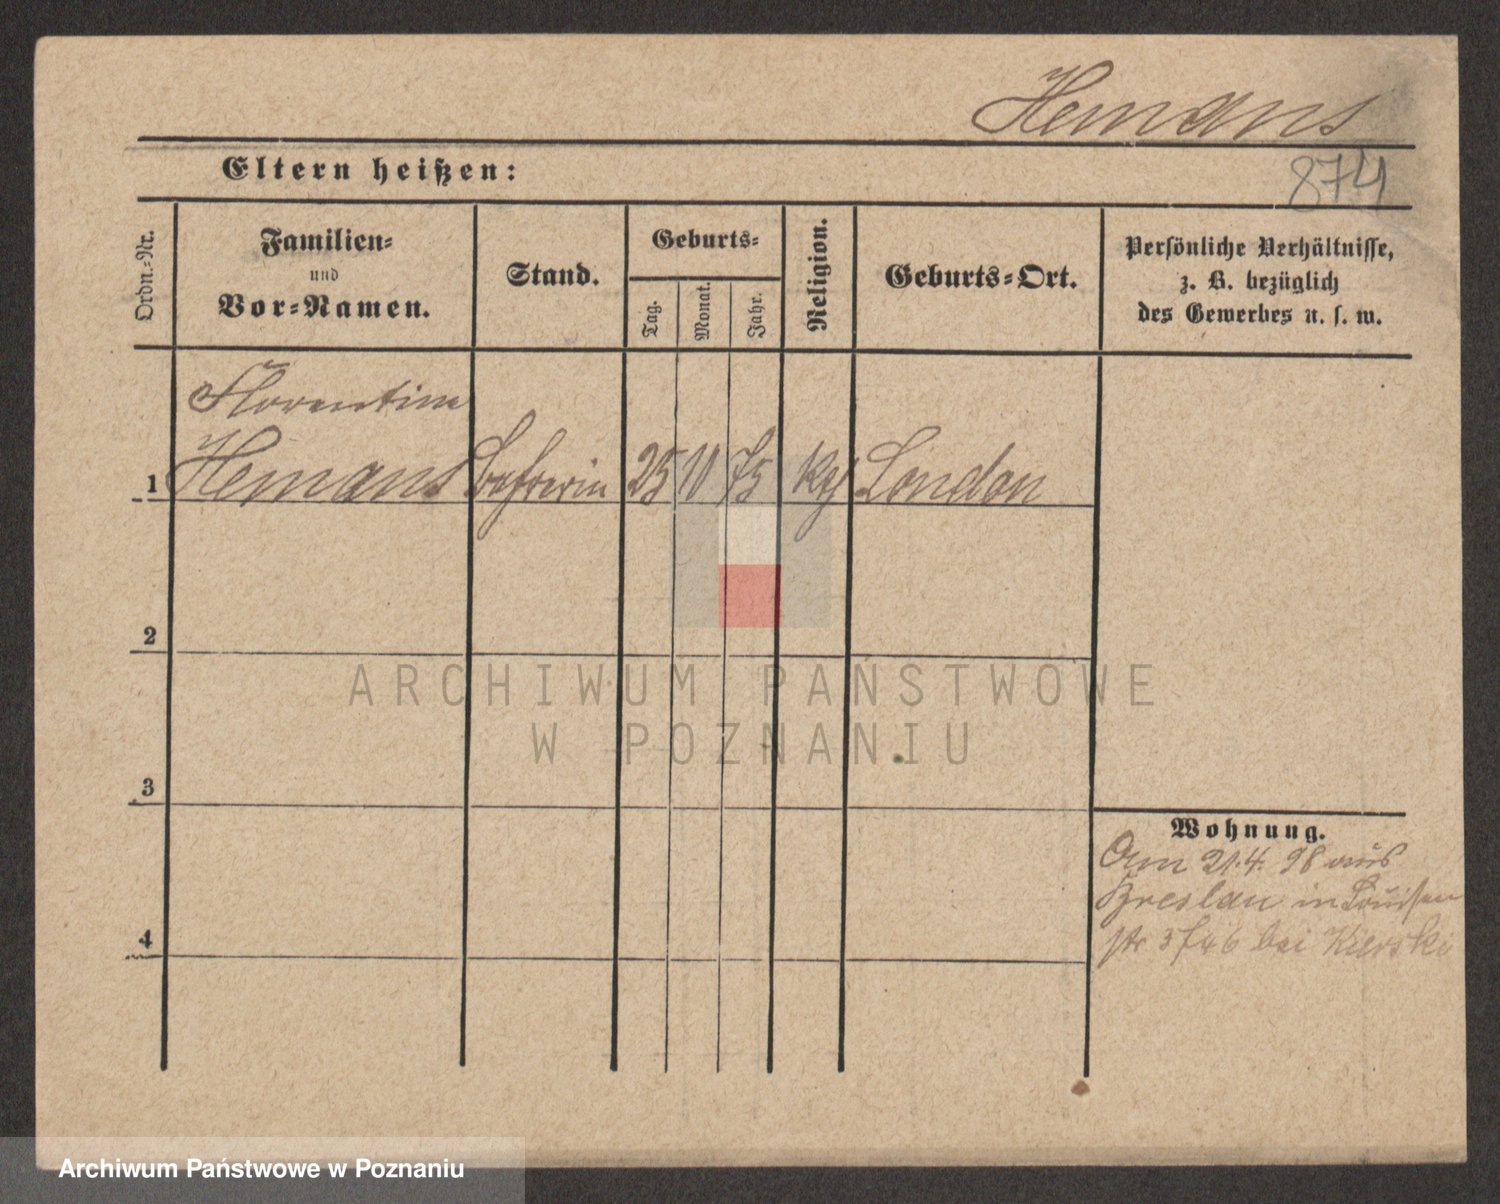 Hemans
874
Eltern heißen:
Ordn.-Nr.
Familien-
und
Vor-Namen.
Stand.
Geburts-
Tag.
Monat.
Jahr.
Religion.
Geburts-Ort.
Persönliche Verhältnisse,
z. B. bezüglich
des Gewerbes u. s. w.
Florentine
1 Hemans Lehrerin 25 10 75 London
2
3
4
Wohnung.
Am 21.4. 98 aus
Breslau in Louisen
str 3 bei Kierski
ARCHIWUM PAŃSTWOWE
W POZNANIU
Archiwum Państwowe w Poznaniu